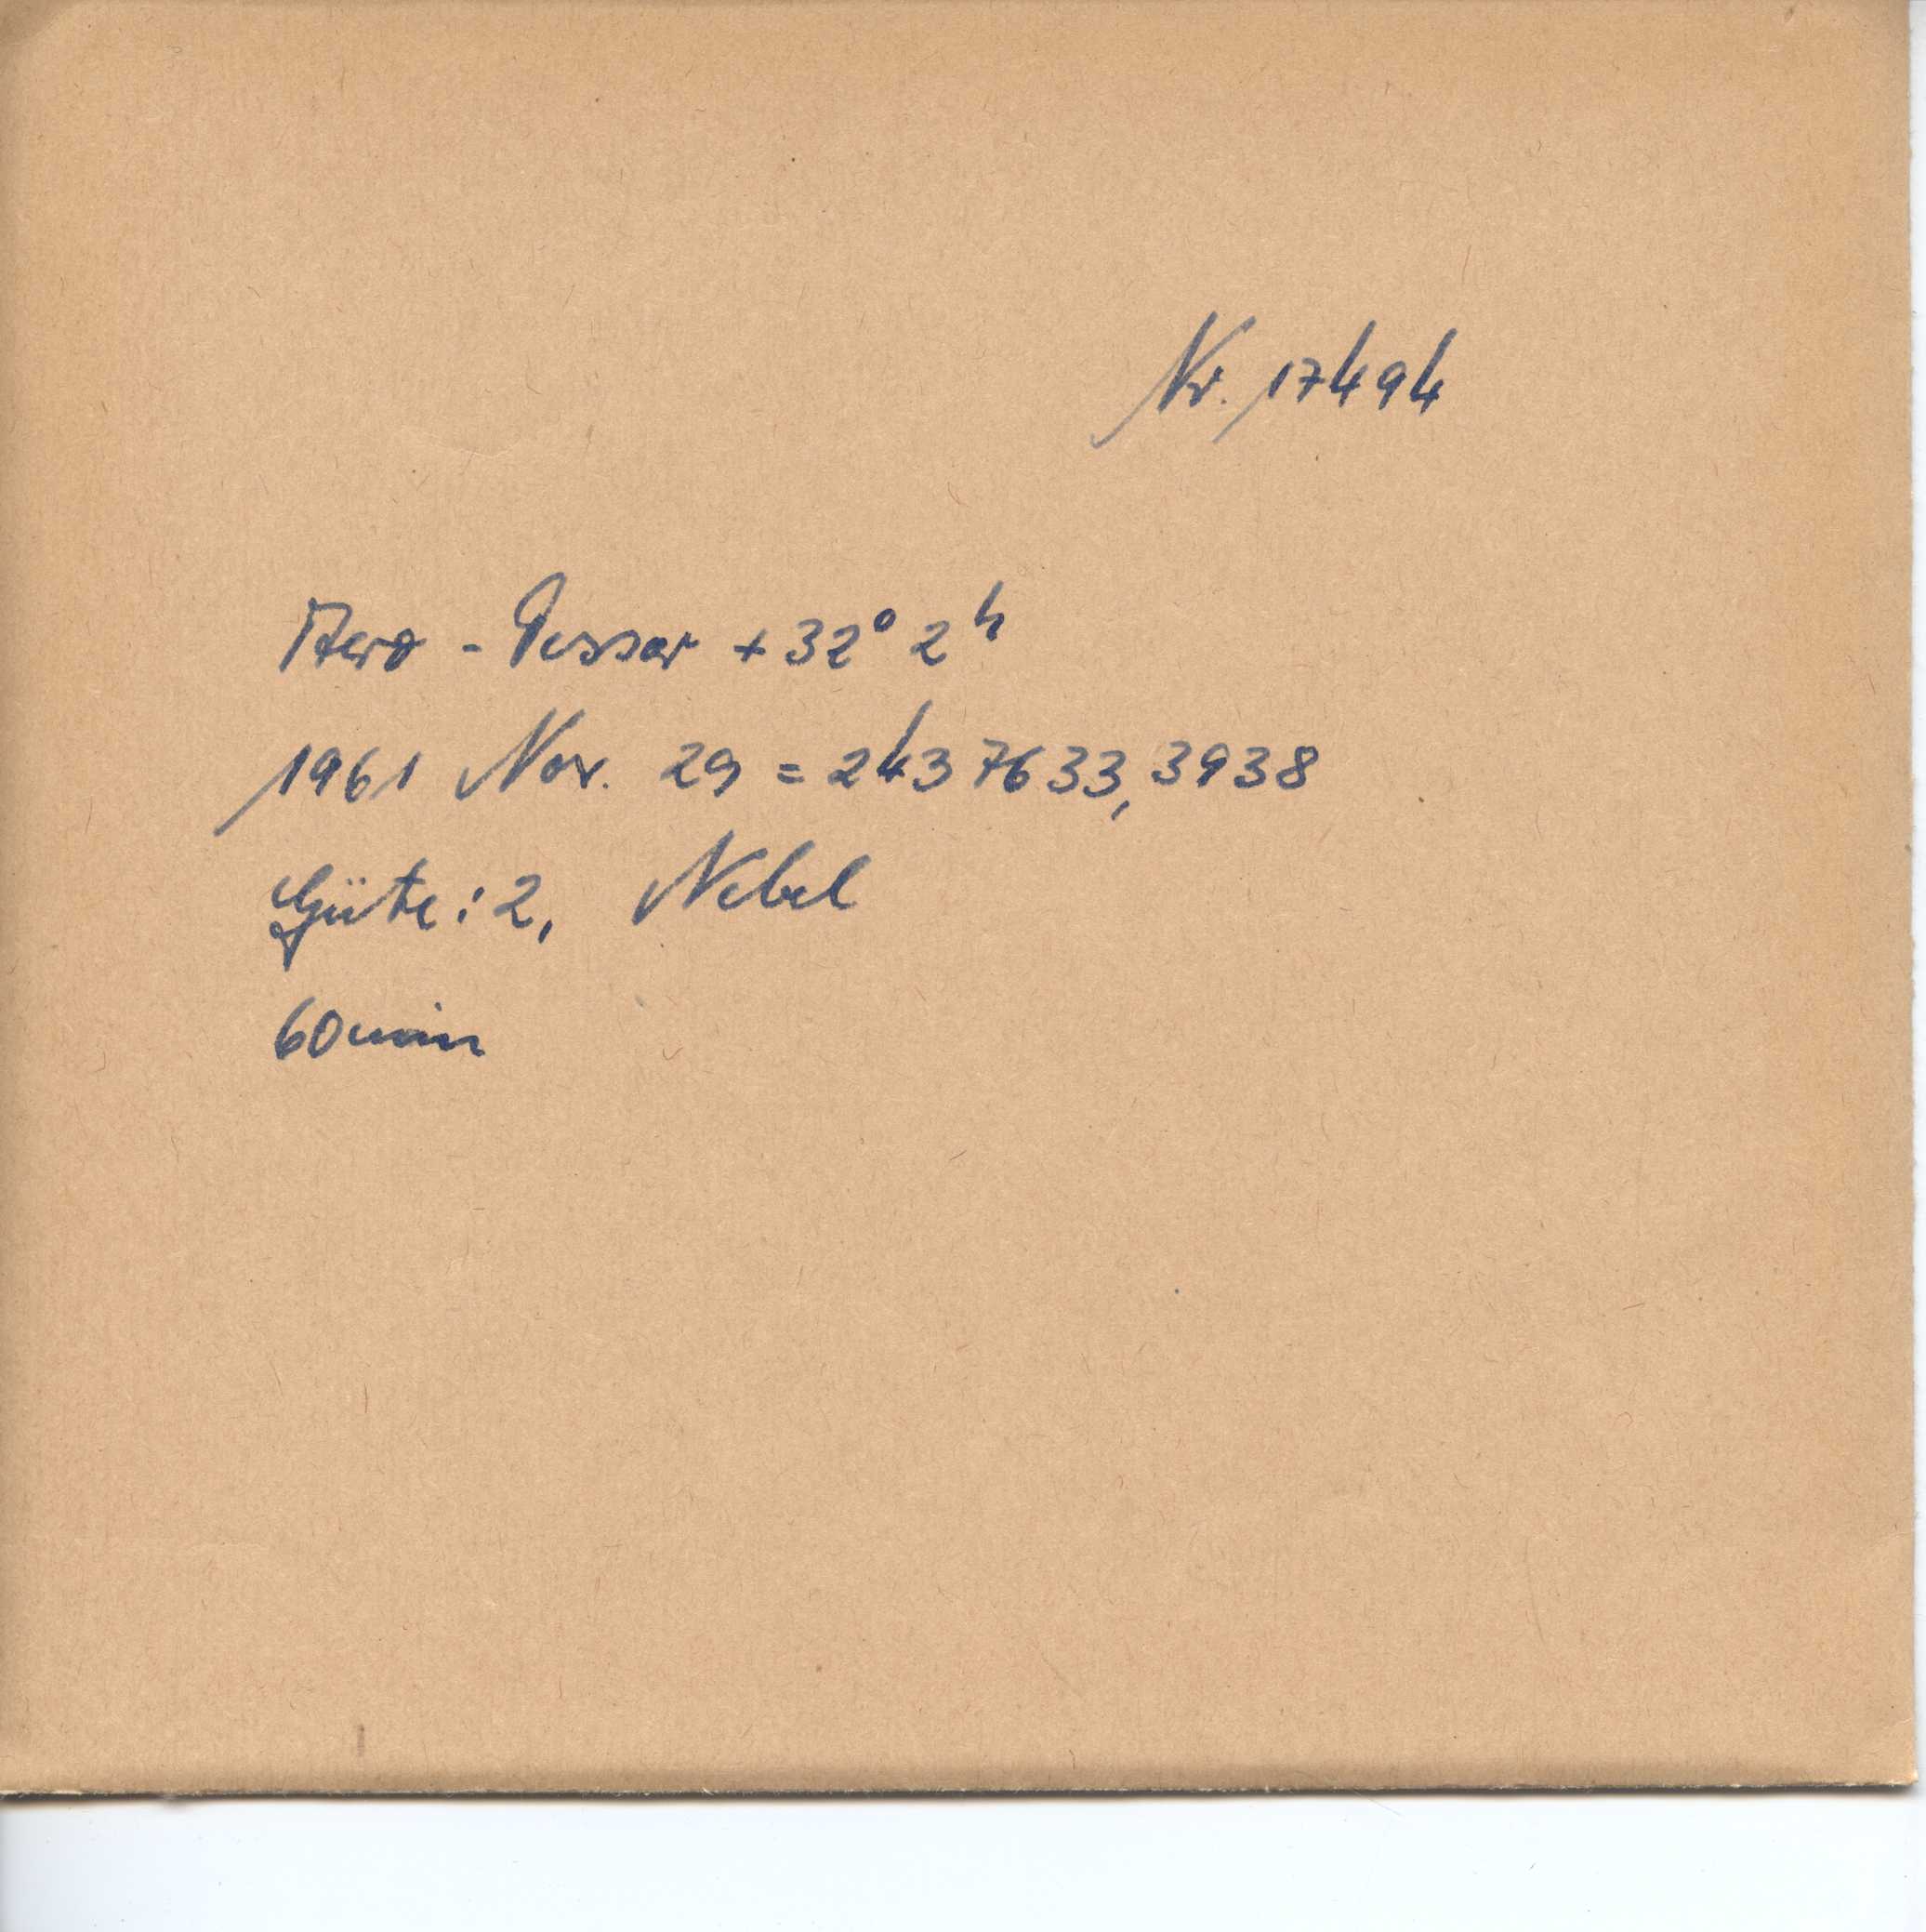 Nr. 17494
Aero - Tessar +32° 2ʰ
1961 Nov. 29 = 2437633,3938
Güte: 2, Nebel
60min